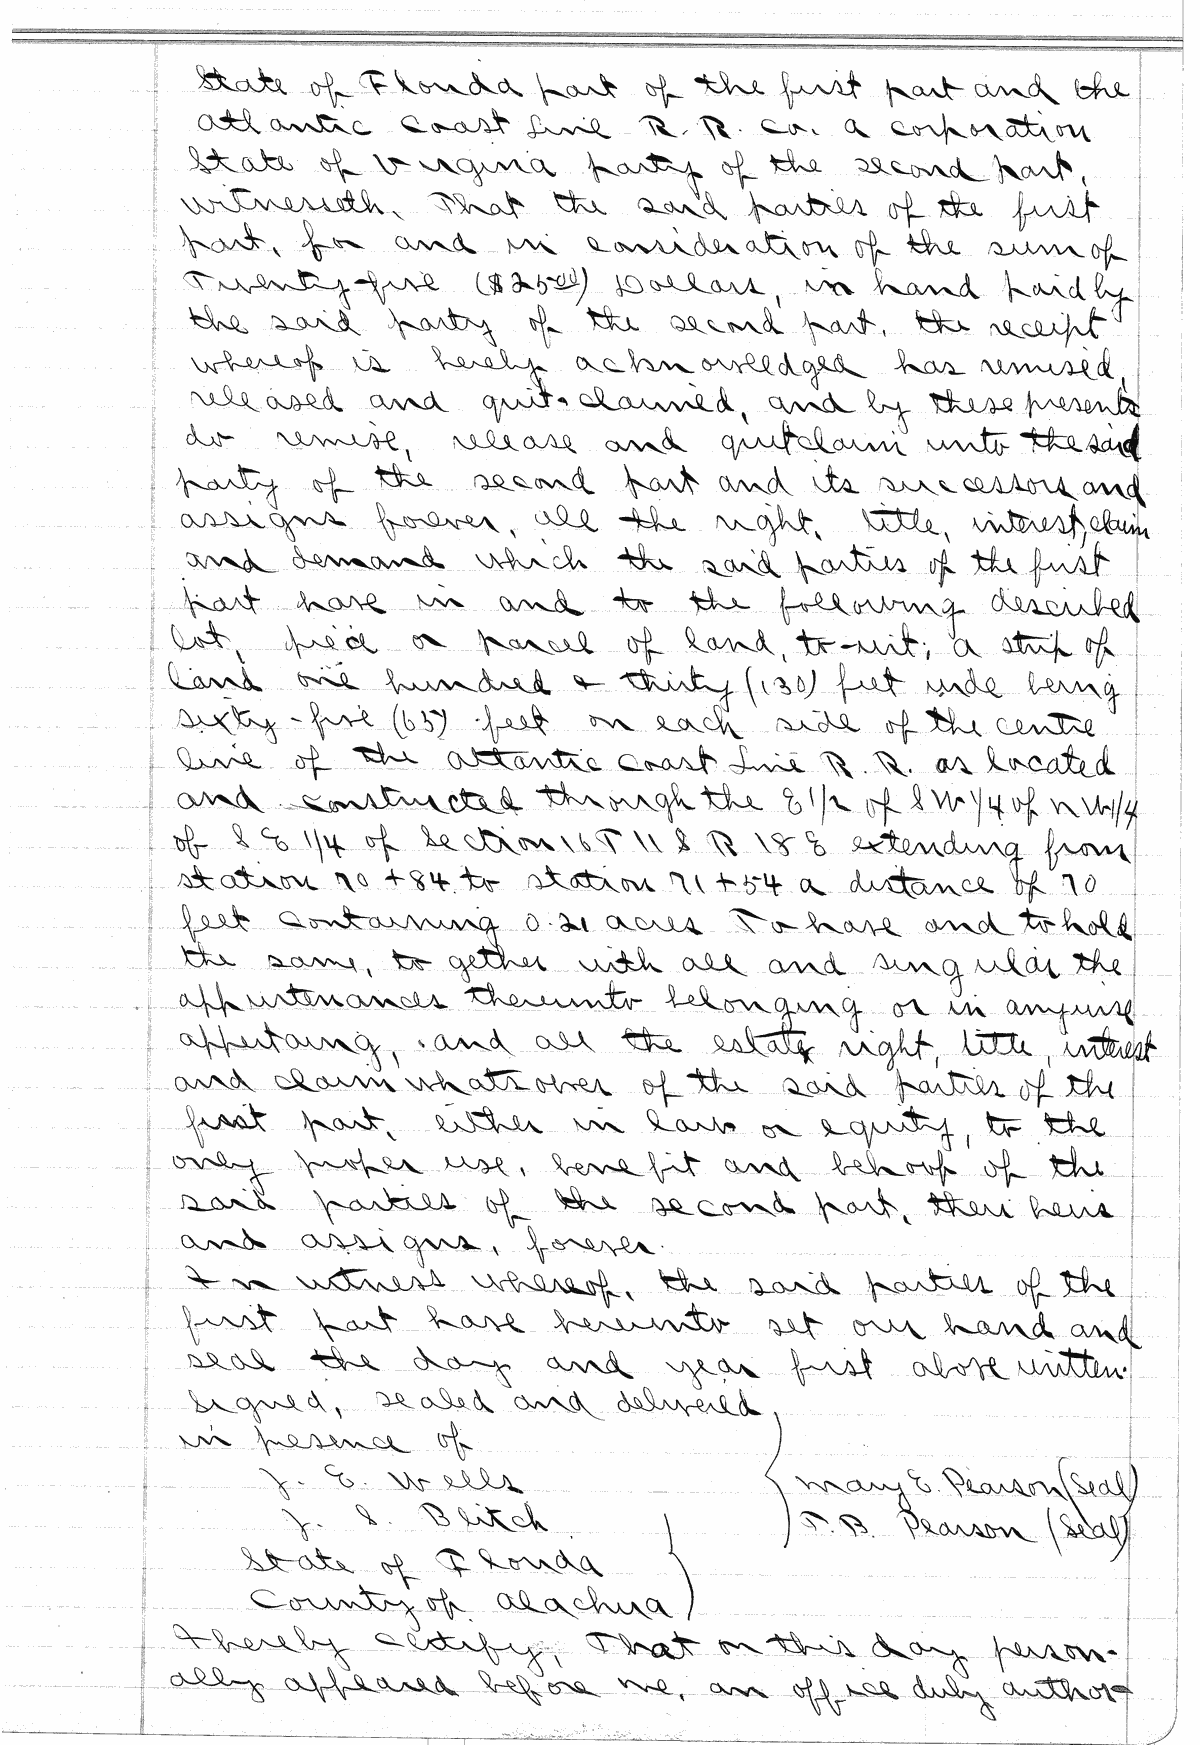 State of Florida part of the first part and the
Atlantic Coast Line R. R. Co. a corporation
State of Virginia party of the second part,
witnesseth, That the said parties of the first
part, for and in consideration of the sum of
Twenty-five ($25 00) Dollars, in hand paid by
the said party of the second part, the receipt
whereof is hereby acknowledged has remised,
released and quit-claimed, and by these presents
do remise, release and quitclaim unto the said
party of the second part and its successors and
assigns forever, all the right, title, interest, claim
and demand which the said parties of the first
part have in and to the following described
lot, piece or parcel of land, to-wit; a strip of
land one hundred & thirty (130) feet wide being
sixty-five (65) feet on each side of the centre
line of the Atlantic Coast Line R. R. as located
and constructed through the E 1/2 of S W 1/4 of N W 1/4
of S E 1/4 of Section 16 T 11 S R 18 E extending from
station 70 + 84 to station 71 + 54 a distance of 70
feet containing 0.21 acres To have and to hold
the same, to gether with all and singular the
appurtenances thereunto belonging or in anywise
appertaing, and all the estate right, title, interest
and claim whatsoever of the said parties of the
first part, either in law or equity, to the
only proper use, benefit and behoof of the
said parties of the second part, their heirs
and assigns, forever.
In witness whereof, the said parties of the
first part have hereunto set our hand and
seal the day and year first above written.
Signed, sealed and delivered,
in presence of
J. E. Wells Mary E. Pearson (Seal)
J. S. Blitch T. B. Pearson (Seal)
State of Florida
County of Alachua
I hereby certify, That on this day person-
ally appeared before me, an office duly author-